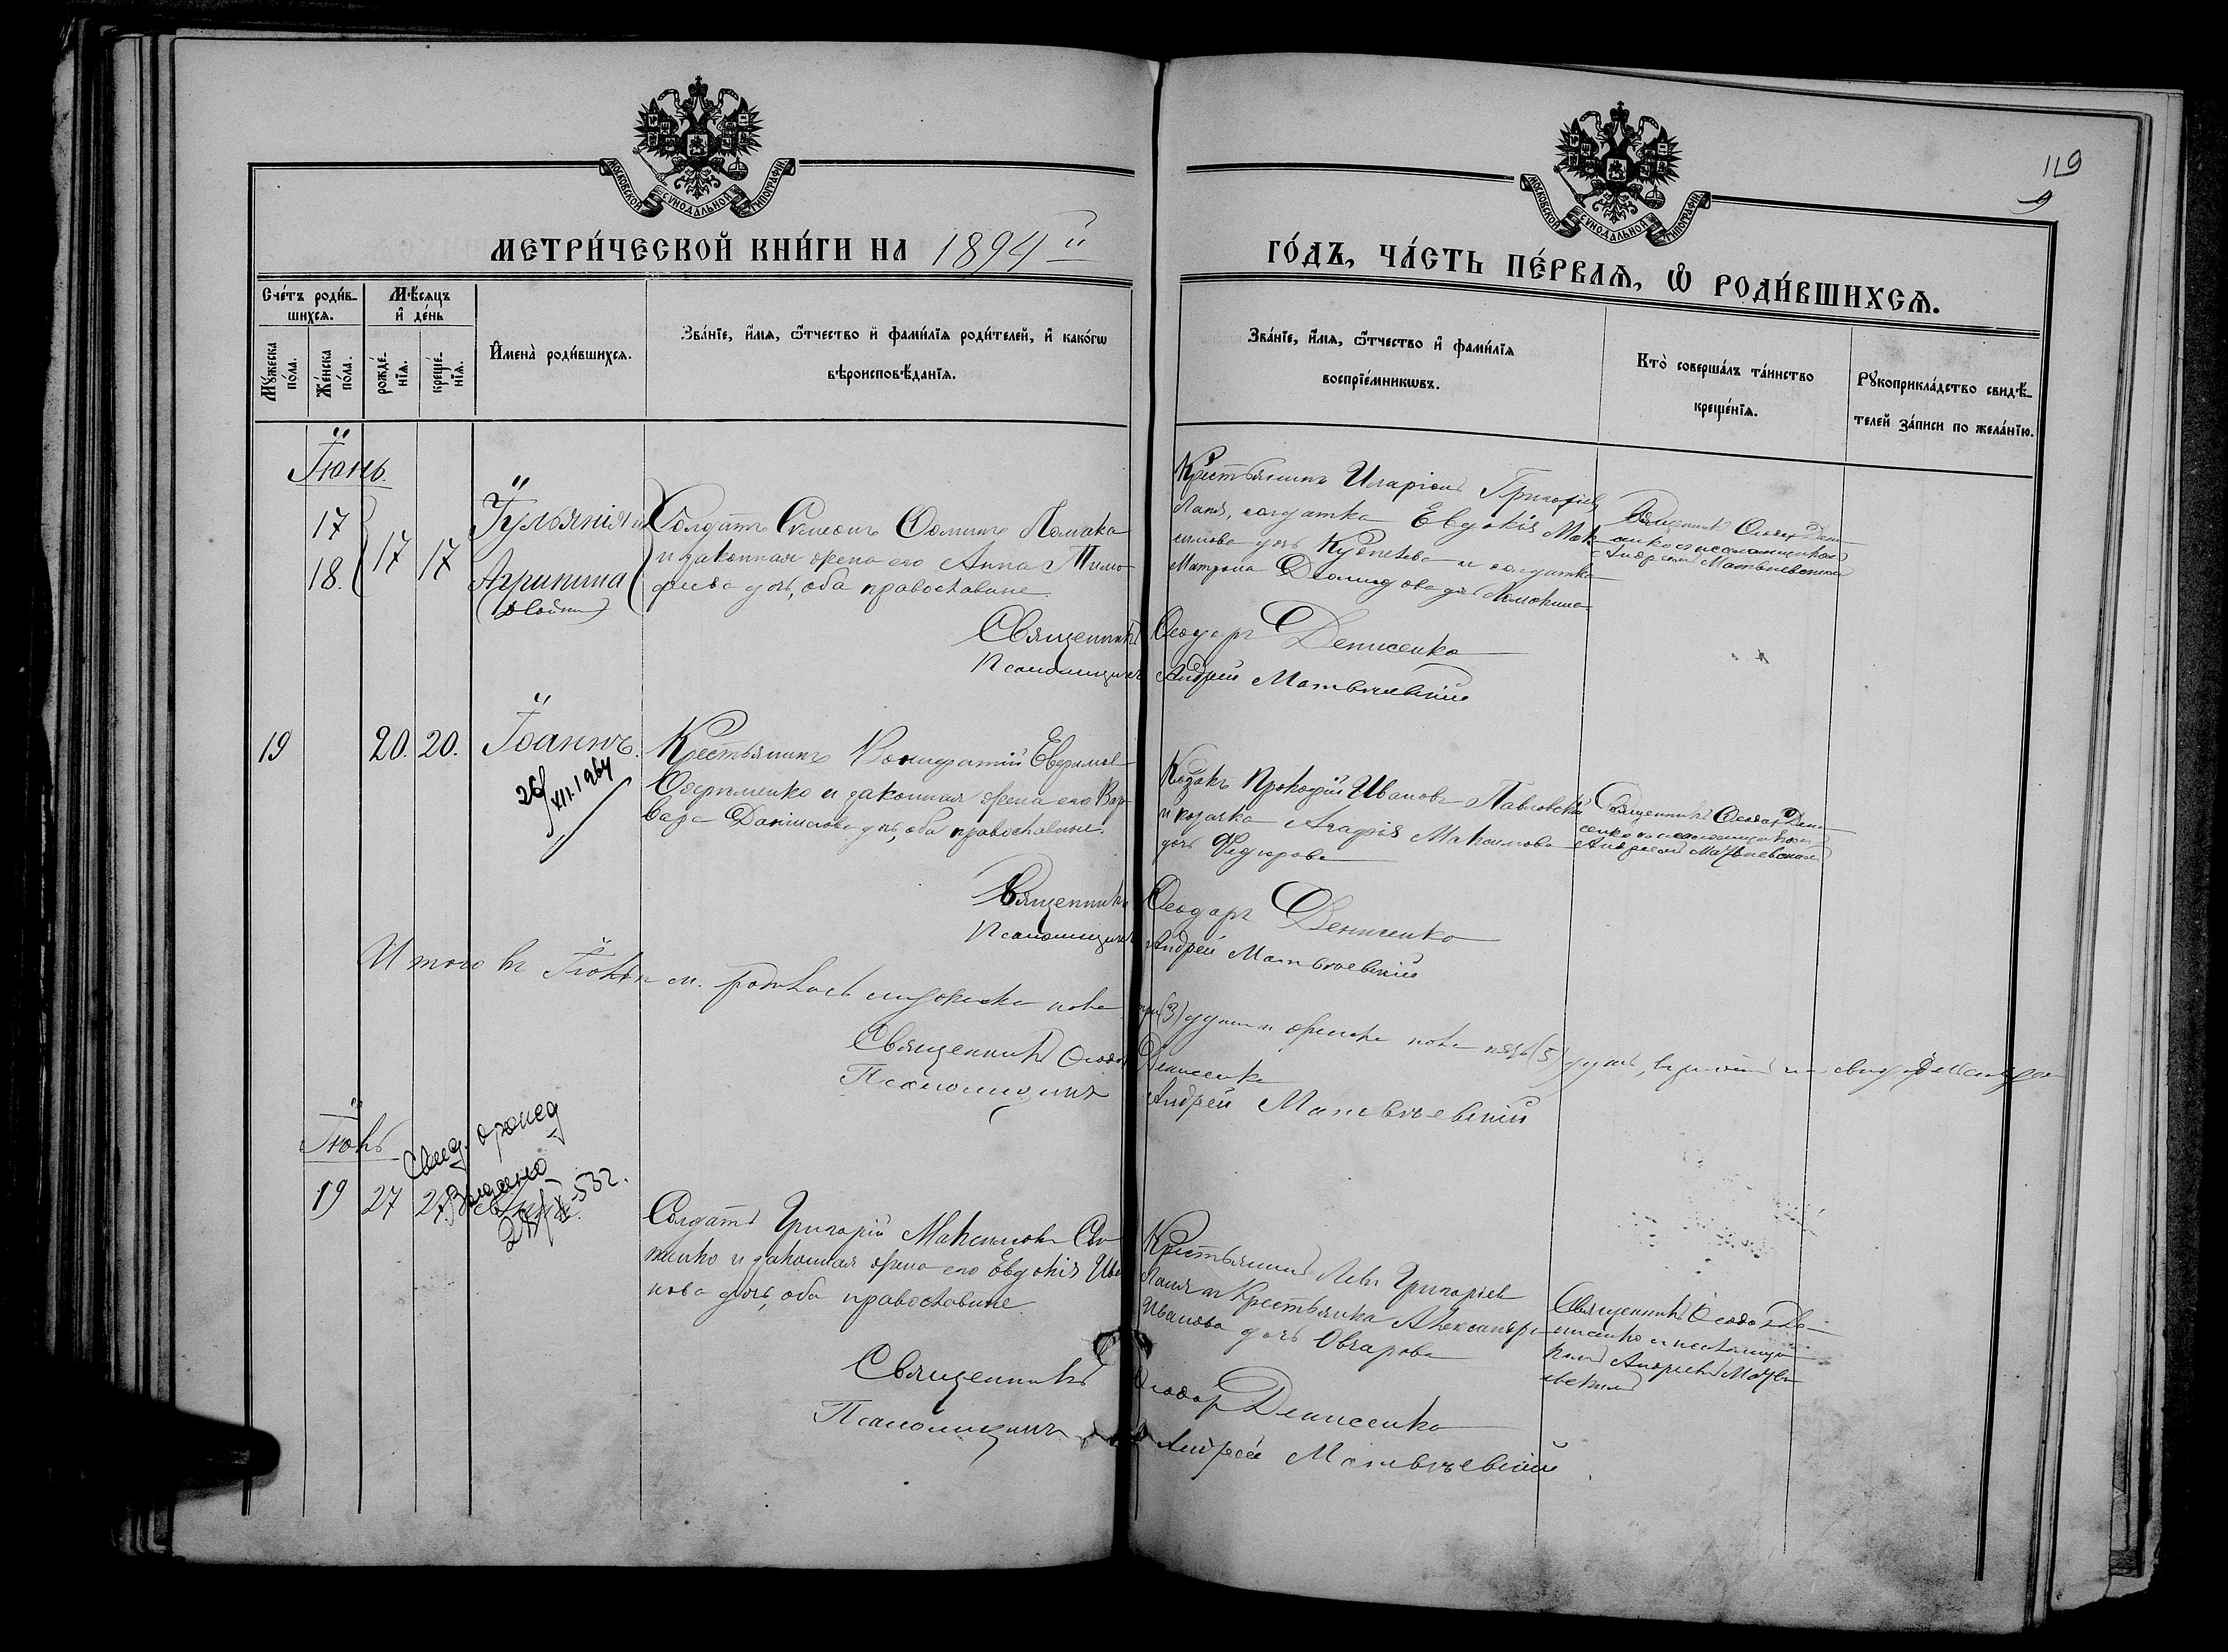 119
9
МОСКОВСКОЙ СУНОДАЛЬНОЙ ТИПОГРАФІИ
МОСКОВСКОЙ СУНОДАЛЬНОЙ ТИПОГРАФІИ
МЕТРИ́ЧЕСКОЙ КНИ́ГИ НА 1894й
ГО́ДЪ, ЧА́СТЬ ПЕ́РВАѦ, Ѡ РОДИ́ВШИХСѦ.
Сче́тъ роди́в-
шихсѧ.
Мѣ́сѧцъ
и҆ де́нь
Мꙋ́жеска
по́ла.
Же́нска
по́ла.
рожде́-
нїѧ.
креще́-
нїѧ.
И҆мена̀ роди́вшихсѧ.
Зва́нїе, и҆́мѧ, ѻ҆́тчество и҆ фами́лїѧ роди́телей, и҆ како́гѡ
вѣроисповѣ́данїѧ.
Зва́нїе, и҆́мѧ, ѻ҆́тчество и҆ фами́лїѧ
воспрїе́мникѡвъ.
Кто̀ соверша́лъ та́инство
креще́нїѧ.
Рꙋкоприкла́дство свидѣ́-
телей за́писи по жела́нїю.
Іюнь.
17
18.
17 17
Іульянія и
Агрипина
(двойни)
Солдатъ Симеонъ Ѳоминъ Ломака
и законная жена его Анна Тимо-
феева дочь, оба православные.
Крестьянинъ Иларіонъ Григоріев
Лапя, солдатка Евдокія Мак-
симова дочь и солдатка
Матрона дочь
Священникъ Ѳеодоръ Дени-
сенко съ псаломщикомъ
Андреемъ Матвѣевскимъ
Священникъ Ѳеодоръ Денисенко
Псаломщикъ Андрей Матвѣевскій
19 20. 20. Іоаннъ.
26/XII.1964
Крестьянинъ Вонифатій Евфимов
и законная жена его Вар-
вара Даніилова дочь, оба православные.
Козакъ Прокофій Иванов Павловскій
и козачка Агафія Максимова
дочь Федорова
Священникъ Ѳеодоръ Дени-
сенко съ псаломщикомъ
Андреемъ Матвѣевскимъ
Священникъ Ѳеодоръ Денисенко
Псаломщикъ Андрей Матвѣевскій
Итого въ м. родилось мужеска пола три (3) души и женска пола пять (5) душъ,
Священникъ Ѳеодоръ Денисенко
Псаломщикъ Андрей Матвѣевскій
Іюль
19 27 27
Свид. о рожд
Выдано
Солдатъ Григорій Максимовъ
и законная жена его Евдокія Ива-
нова дочь, оба православные.
Крестьянинъ Левъ Григоріев
Лапя и Крестьянка Александра
Иванова дочь Овчарова
Священникъ Ѳеодоръ Де-
нисенко и псаломщи-
комъ Андреемъ Матвѣ-
евскимъ
Священникъ Ѳеодоръ Денисенко
Псаломщикъ Андрей Матвѣевскій